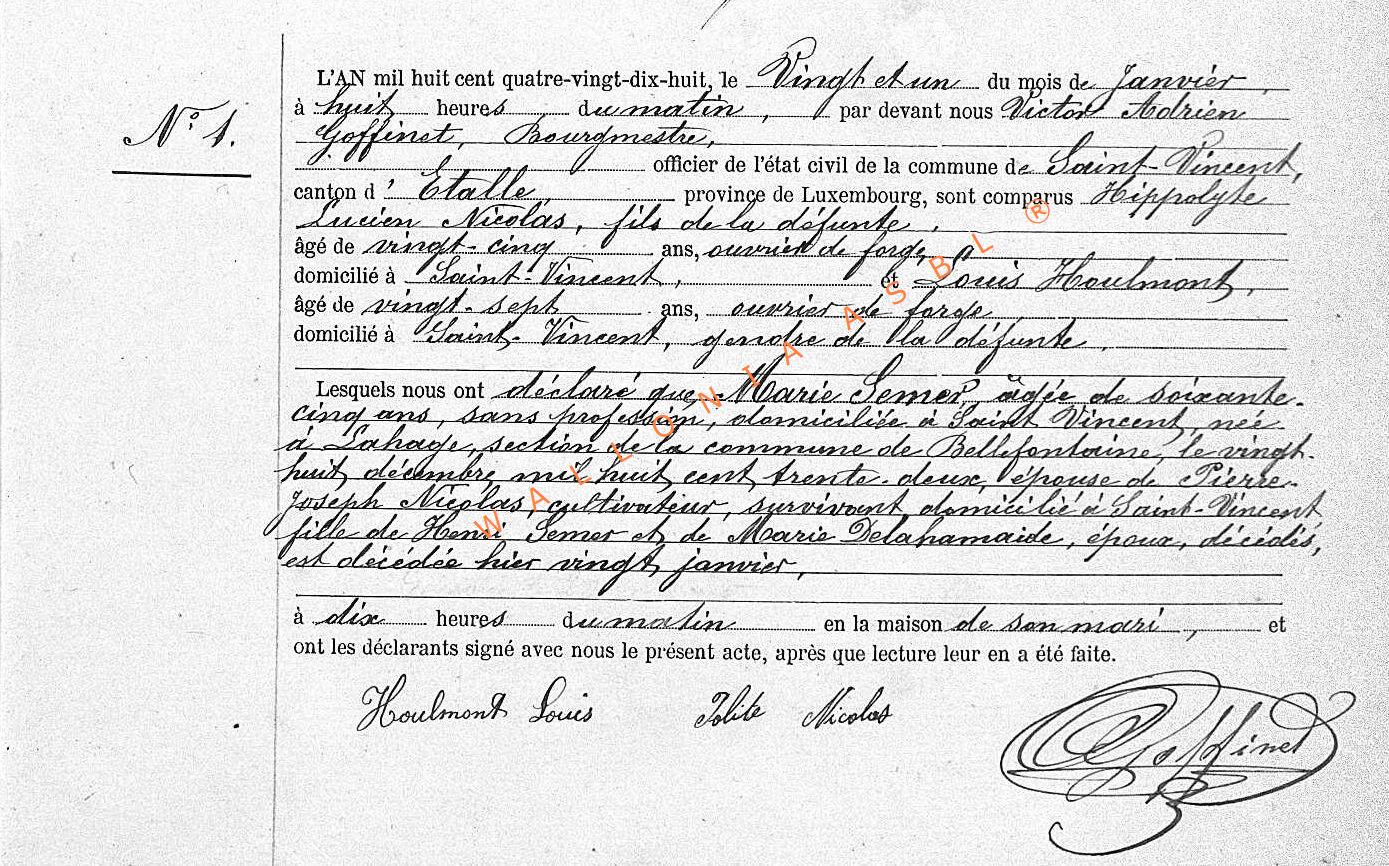 L'AN mil huit cent quatre-vingt-dix-huit, le Vingt et un du mois de Janvier,
N° 1.
à huit heures du matin, par devant nous Victor Adrien
Goffinet, Bourgmestre,
officier de l'état civil de la commune de Saint-Vincent,
canton d'Etalle, province de Luxembourg, sont comparus Hippolyte
Lucien Nicolas, fils de la défunte,
âgé de vingt-cinq ans, ouvrier de forge,
domicilié à Saint-Vincent, et Louis Houlmont,
âgé de vingt-sept ans, ouvrier de forge,
domicilié à Saint-Vincent, gendre de la défunte,
Lesquels nous ont déclaré que Marie Semer, âgée de soixante-
cinq ans, sans profession, domiciliée à Saint Vincent, née
à Lahage, section de la commune de Bellefontaine, le vingt-
huit décembre mil huit cent trente-deux, épouse de Pierre-
Joseph Nicolas, cultivateur, survivant, domicilié à Saint-Vincent
fille de Henri Semer et de Marie Delahamaide, époux, décédés,
est décédée hier vingt janvier,
à dix heures du matin en la maison de son mari, et
ont les déclarants signé avec nous le présent acte, après que lecture leur en a été faite.
Houlmont Louis Polite Nicolas
Goffinet
WALLONIA ASBL ®